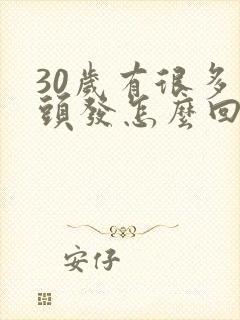 30歲有很多
頭發怎麼回
安仔